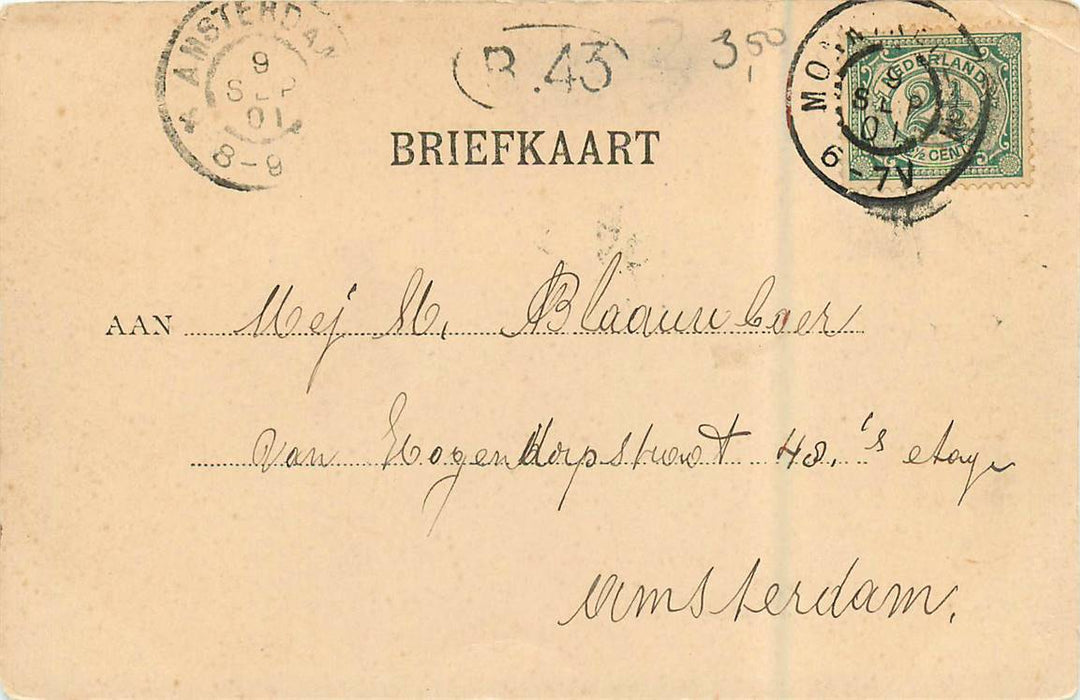 AMSTERDAM
9
SEP
01
8-9
B.43
3,50
NEDERLAND
2½
½ CENT
9
SEP
01
6-7V
BRIEFKAART
AAN Mej M. Blaauwboer
van Hogendorpstraat 48. 's etage
Amsterdam.